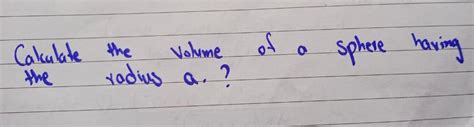 Calculate the volume of a sphere having
the radius a.?